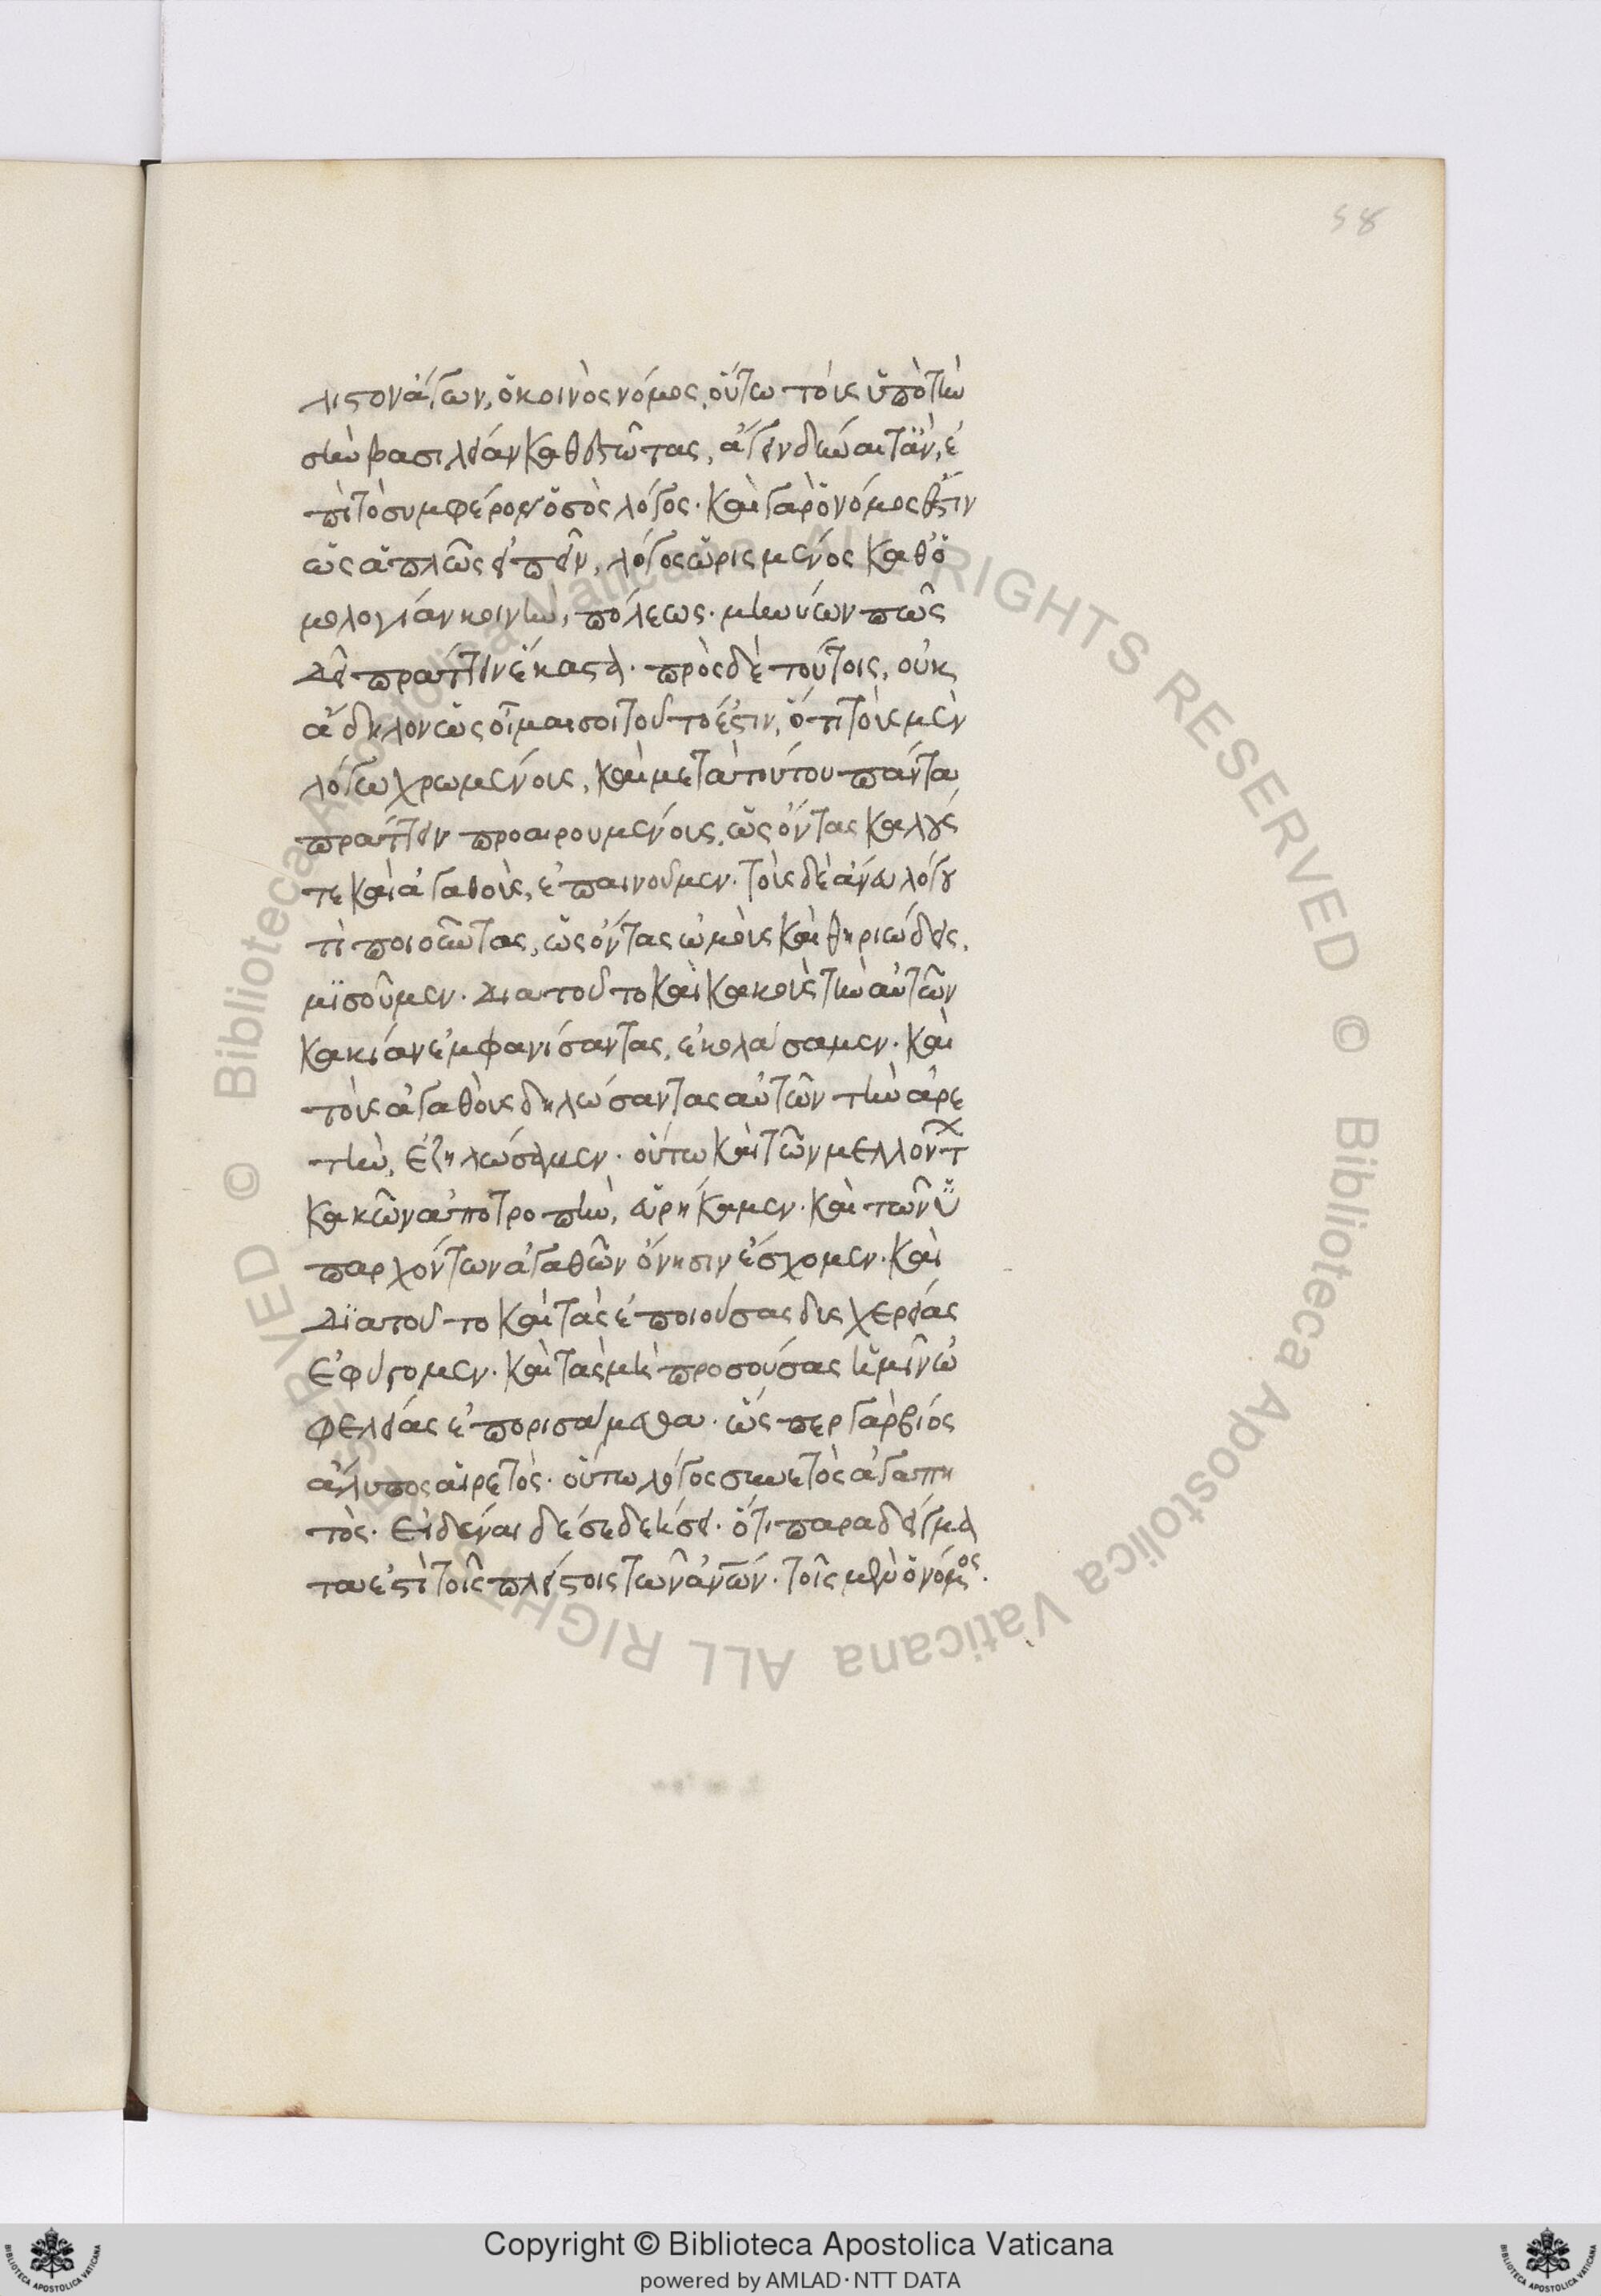 58
λιστον ἄγων, ὁ κοινὸς νόμος, οὕτω τοὺς ὑπὸ τὴν
σὴν βασιλείαν καθεστῶτας, ἄγειν δυνήσεται, ἐ
πὶ τὸ συμφέρον ὁ σὸς λόγος. καὶ γὰρ ὁ νόμος ἐστὶν
ὡς ἁπλῶς εἰπεῖν, λόγος ὡρισμένος καθ' ὁ
μολογίαν κοινὴν, πόλεως. μηνύων πῶς
δεῖ πράττειν ἕκαστα. πρὸς δὲ τούτοις, οὐκ
ἄδηλον ὡς οἶμαι σοι τοῦτο ἐστιν, ὅτι τοὺς μὲν
λόγω χρωμένους, καὶ μετὰ τούτου πάντα
πράττειν προαιρουμένους, ὡς ὄντας καλούς
τε καὶ ἀγαθοὺς, ἐπαινοῦμεν. τοὺς δὲ ἄνευ λόγου
τὶ ποιοῦντας, ὡς ὄντας ὠμοὺς καὶ θηριώδεις,
μϊσοῦμεν. δια τοῦτο καὶ κακοὺς τὴν αὐτῶν
κακίαν ἐμφανίσαντας, ἐκολάσαμεν. καὶ
τοὺς ἀγαθοὺς δηλώσαντας αὐτῶν τὴν ἀρε
τὴν, ἐζηλώσαμεν. οὕτω καὶ τῶν μελλόντ
κακῶν ἀποτροπὴν, εὑρήκαμεν. καὶ τῶν ὑ
παρχόντων ἀγαθῶν ὄνησιν ἔσχομεν. καὶ
δϊα τοῦτο καὶ τὰς ἐποιούσας δυσχερείας
ἐφύγομεν. καὶ τὰς μὴ προσούσας ἡμῖν ὠ
φελείας ἐπορισάμεθα. ὥσπερ γὰρ βιός
ἄλυπος αἱρετὸς. οὕτω λόγος συνετὸς ἀγαπη
τὸς. εἰδέναι δέ σε δεήσει. ὅτι παραδείγμα
τα ἐστὶ τοῖς πλείστοις τῶν ἀνων. τοῖς μὲν ὁ νόμος.
Copyright © Biblioteca Apostolica Vaticana
powered by AMLAD·NTT DATA